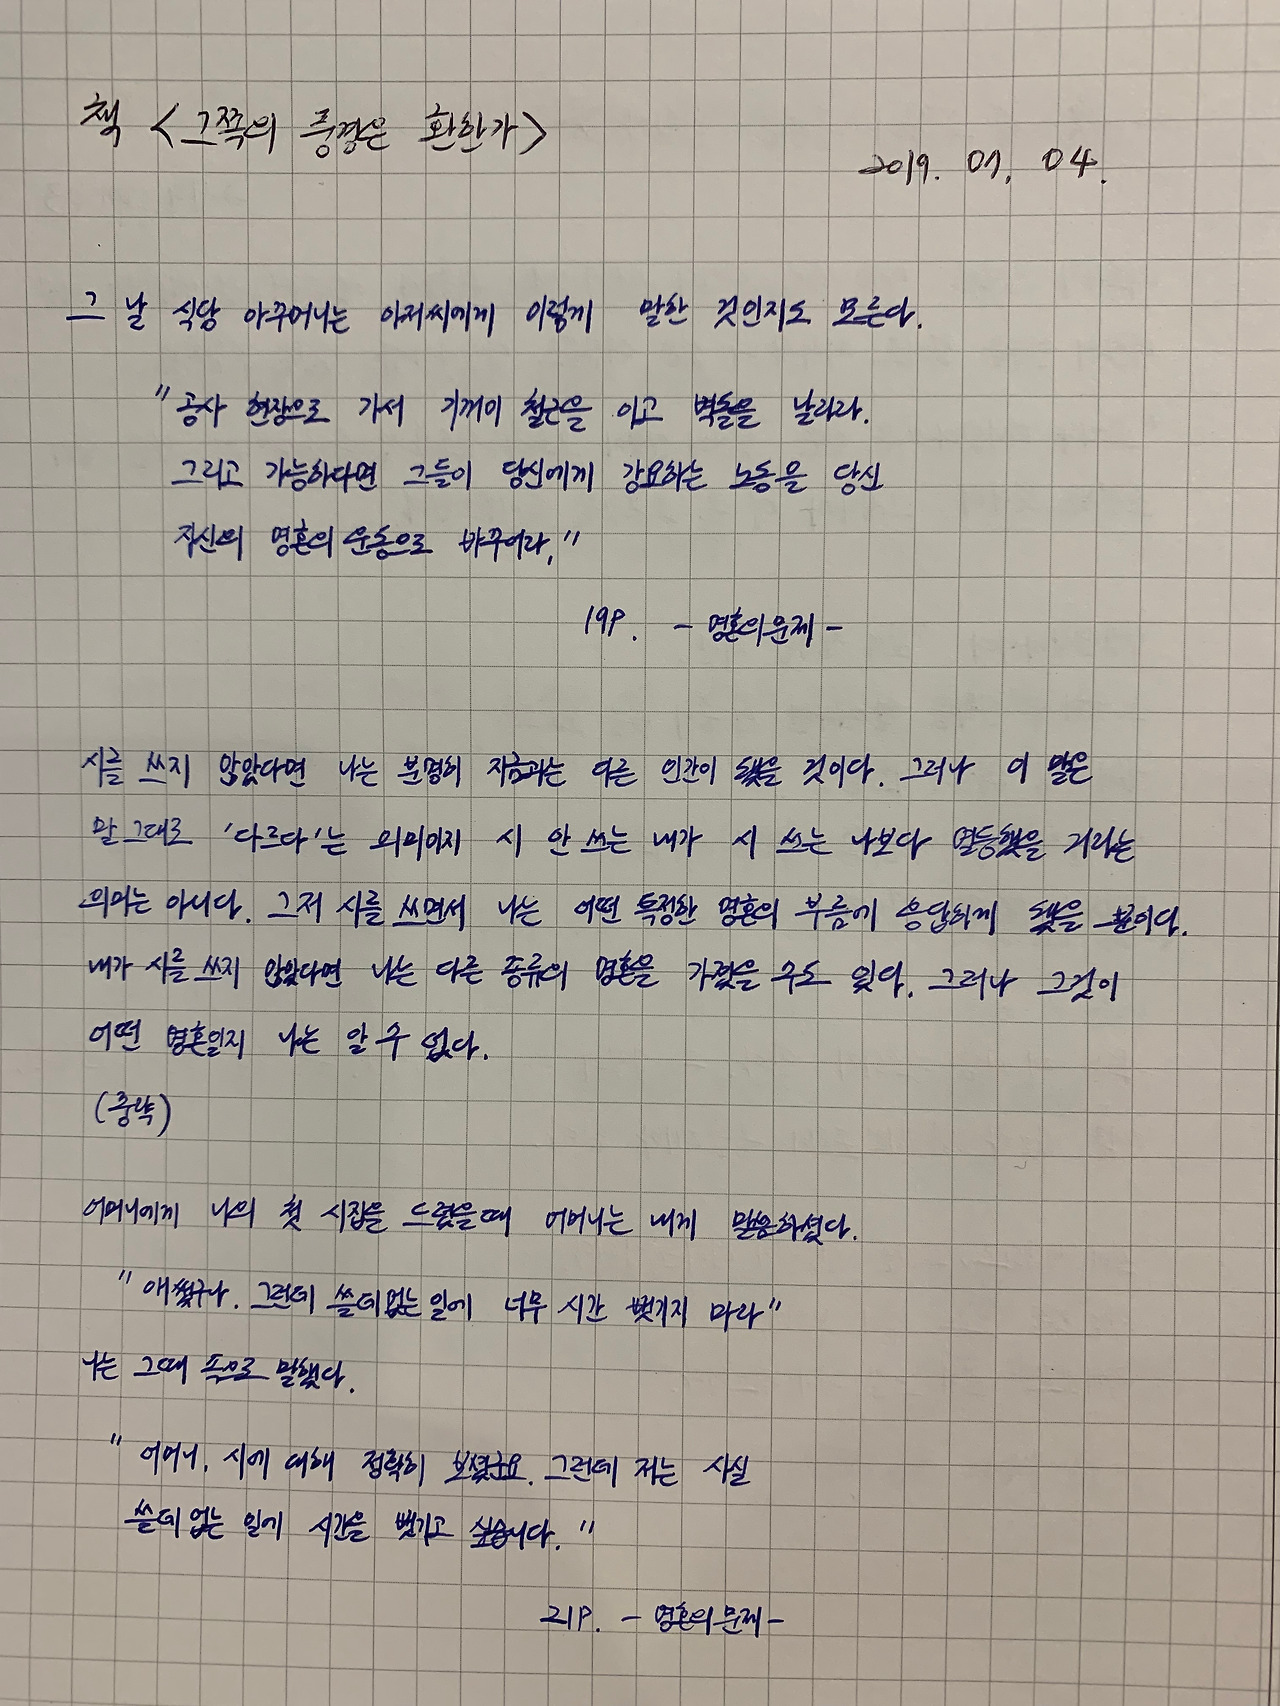 책 <그쪽의 풍경은 환한가>
2019. 01. 04.
그 날 식당 아주머니는 아저씨에게 이렇게 말한 것인지도 모른다.
"공사 현장으로 가서 기꺼이 철근을 이고 벽돌을 날라라.
그리고 가능하다면 그들이 당신에게 강요하는 노동을 당신
자신의 영혼의 운동으로 바꾸어라."
19P. - 영혼의 문제 -
시를 쓰지 않았다면 나는 분명히 지금과는 다른 인간이 됐을 것이다. 그러나 이 말은
말 그대로 '다르다'는 의미이지 시 안 쓰는 내가 시 쓰는 나보다 열등했을 거라는
의미는 아니다. 그저 시를 쓰면서 나는 어떤 특정한 영혼의 부름에 응답하게 됐을 뿐이다.
내가 시를 쓰지 않았다면 나는 다른 종류의 영혼을 가졌을 수도 있다. 그러나 그것이
어떤 영혼일지 나는 알 수 없다.
(중략)
어머니에게 나의 첫 시집을 드렸을때 어머니는 내게 말씀하셨다.
"애썼구나. 그런데 쓸데없는 일에 너무 시간 뺏기지 마라"
나는 그때 속으로 말했다.
"어머니, 시에 대해 정확히 보셨군요. 그런데 저는 사실
쓸데없는 일에 시간을 뺏기고 싶습니다."
21P. - 영혼의 문제 -